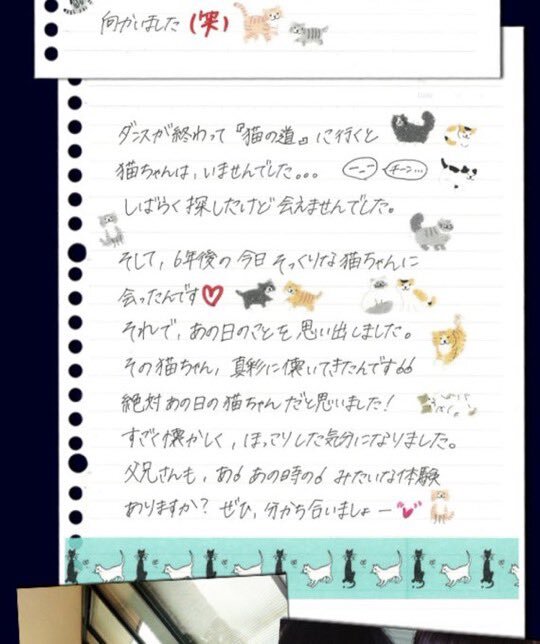 向かいました(笑)
ダンスが終わって『猫の道』に行くと
猫ちゃんは、いませんでした。。。 チーン...
しばらく探したけど会えませんでした。
そして、6年後の今日そっくりな猫ちゃんに
会ったんです♡
それで、あの日のことを思い出しました。
その猫ちゃん、真彩に懐いてきたんです66
絶対あの日の猫ちゃんだと思いました!
すごく懐かしく、ほっこりした気分になりました。
父兄さんも、あ6あの時の6みたいな体験
ありますか?ぜひ、分かち合いましょー